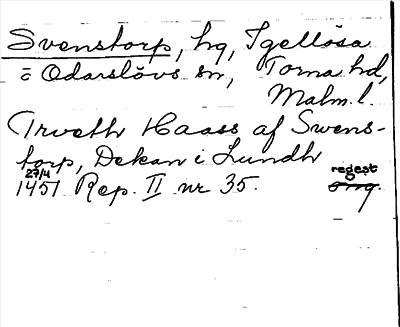 Svenstorp, hg, Igellösa
o Odarslövs sn, Torna hd,
Malm. l.
Trveth Haass af Swens-
torp, Dekan i Lundh
27/4 regest
1451 Rep. II nr 35. orig.